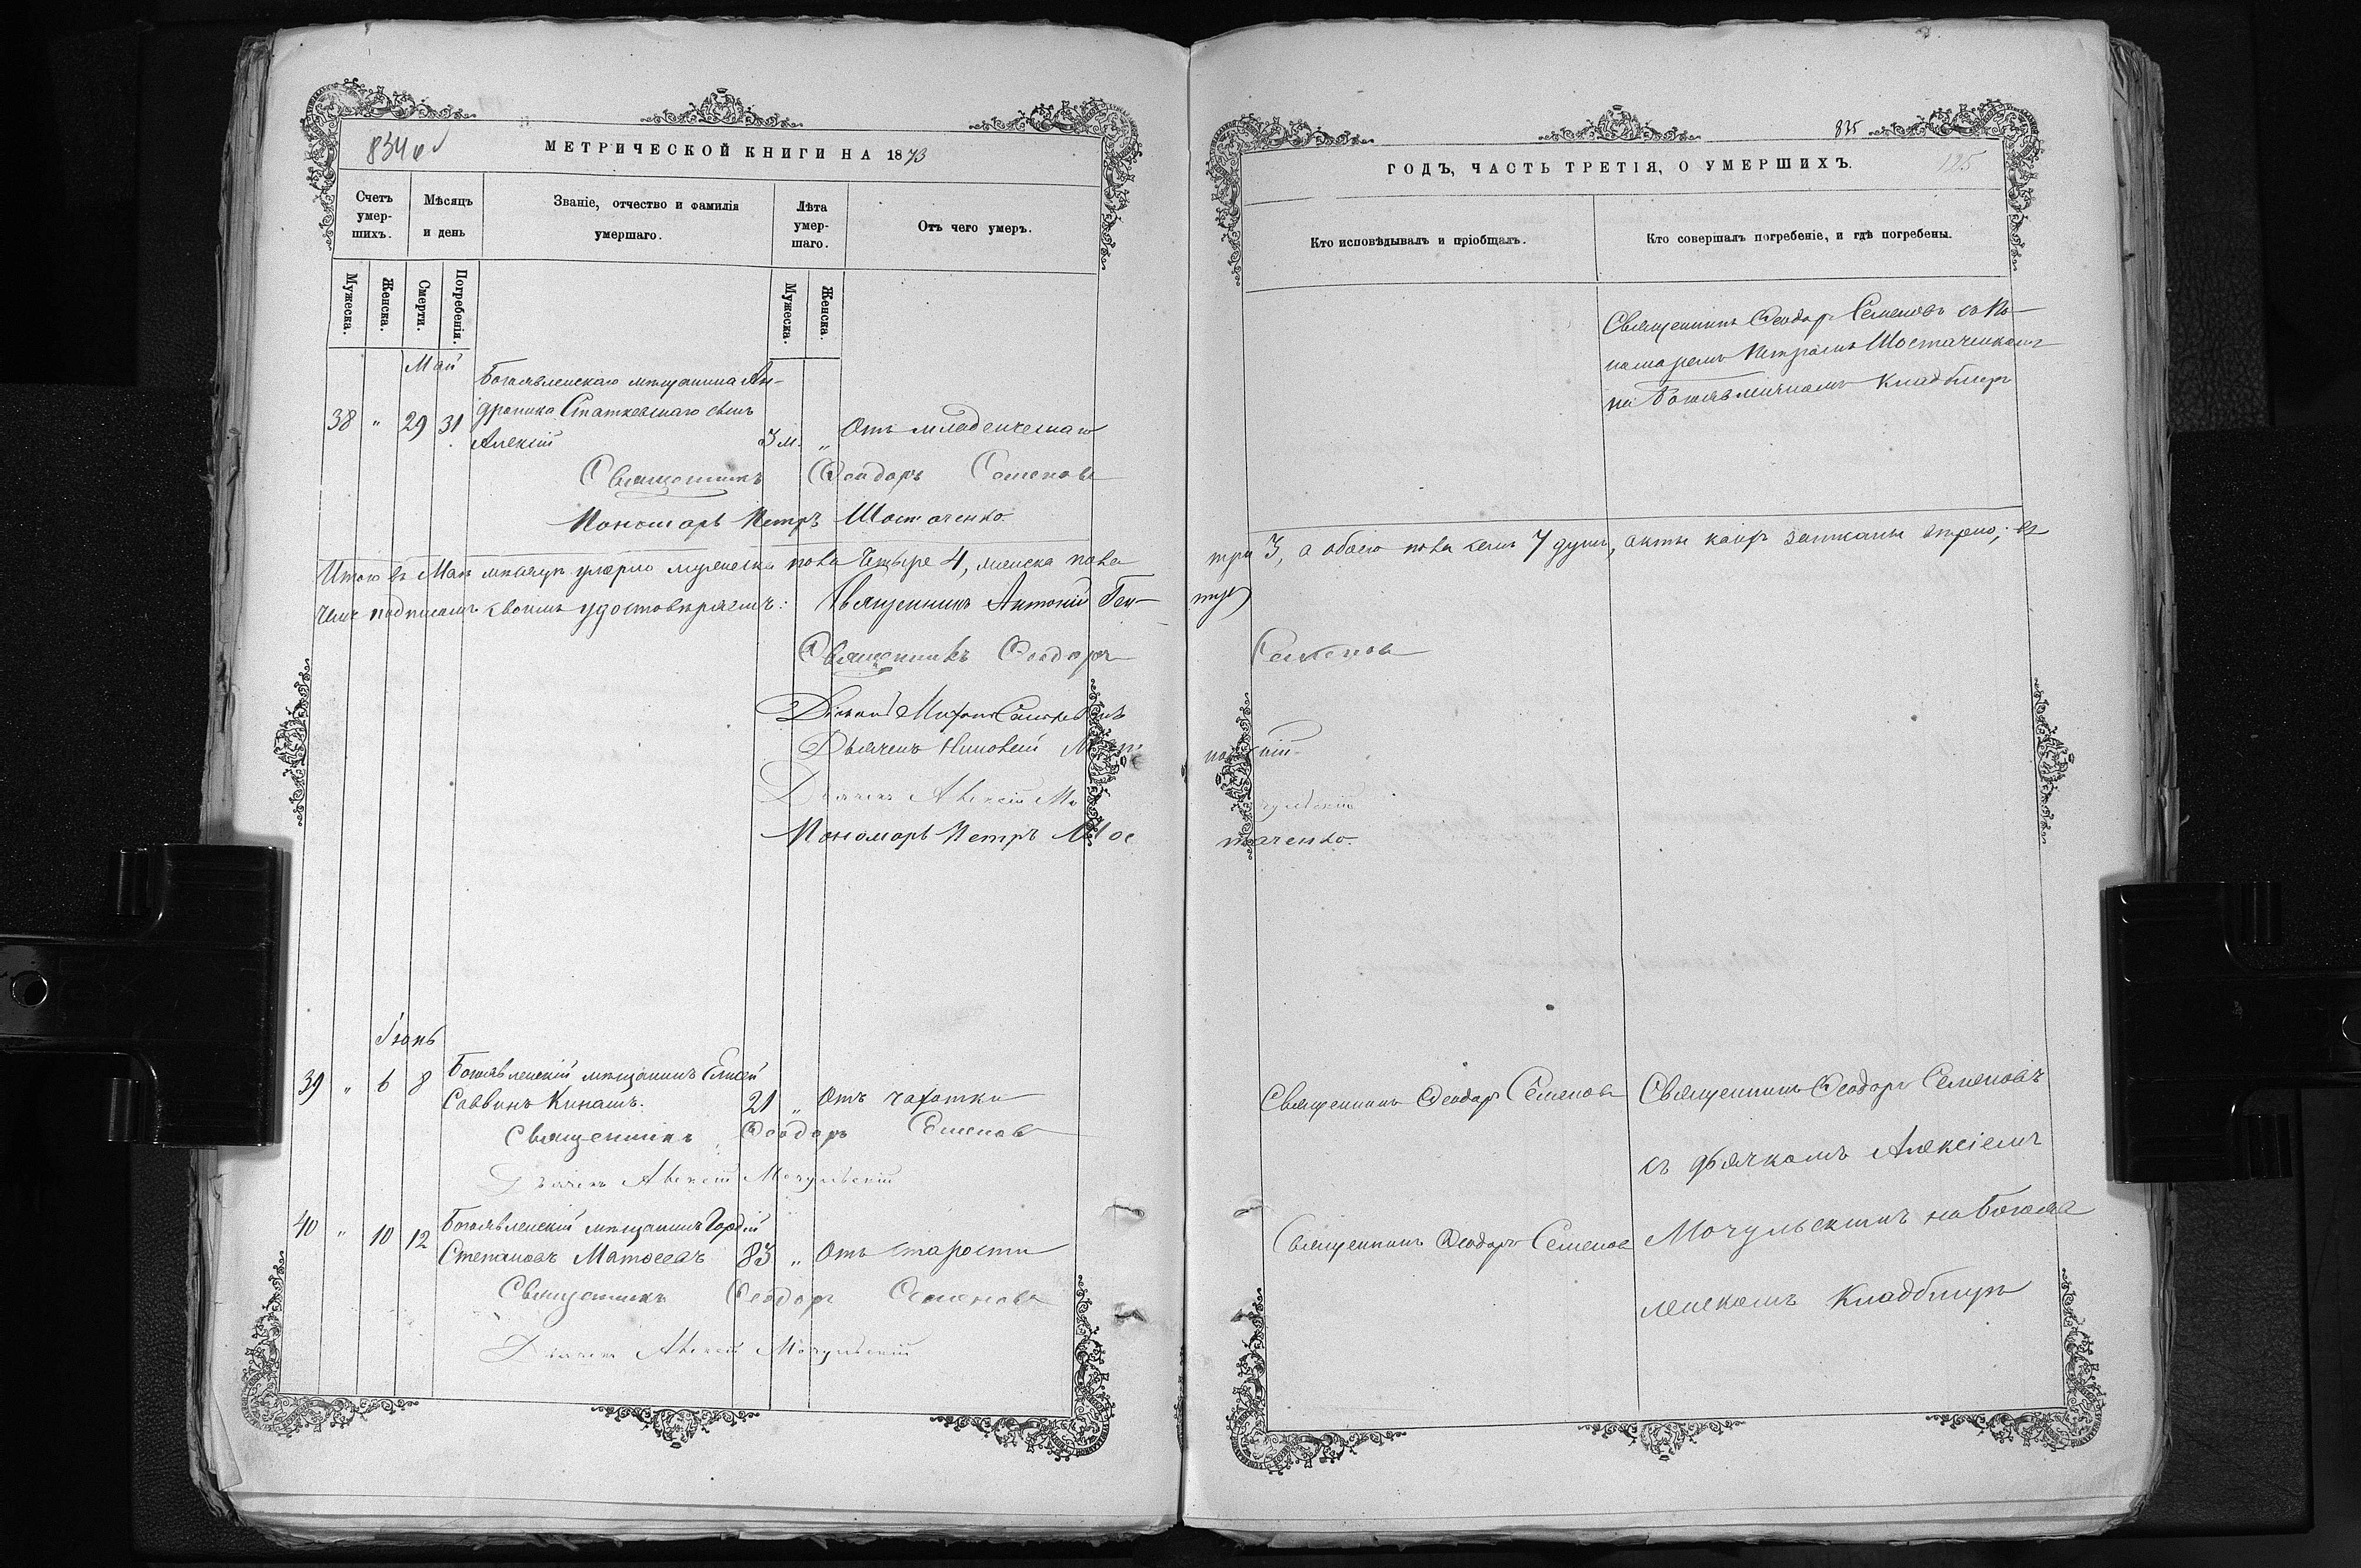 834 об
МЕТРИЧЕСКОЙ КНИГИ НА 1873
Счетъ умер-шихъ.
Мѣсяцъ и день
Званіе, отчество и фамилія умершаго.
Лѣта умер-шаго.
Отъ чего умеръ.
Мужеска.
Женска.
Смерти.
Погребенія.
Мужеска.
Женска.
Май
Богоявленскаго мѣщанина Ан-
дроника Статкевскаго сынъ
38 " 29 31
Алексій 3 м. " Отъ младенческаго
Священникъ Ѳеодоръ Семеновъ
Пономарь Петръ Шостаченко.
Итого въ Маѣ мѣсяцѣ умерло мужеска пола четыре 4, женска пола
чемъ подписомъ своимъ удостовѣряемъ: Священникъ Антоній Ген-
Священникъ Ѳеодоръ
Діаконъ
Дьячекъ
Дьячекъ Алексій Мо
Пономарь Петръ Шос
Іюнь
Богоявленскій мѣщанинъ Елисей
39 " 6 8
Саввинъ Кинашъ. 21 " Отъ чахотки
Священникъ Ѳеодоръ Семеновъ
Дьячекъ Алексій Мочульскій
Богоявленскій мѣщанинъ Гордій
40 " 10 12
Степановъ Матвеевъ 83 " Отъ старости
Священникъ Ѳеодоръ Семеновъ
Дьячекъ Алексій Мочульскій
835
125
ГОДЪ, ЧАСТЬ ТРЕТІЯ, О УМЕРШИХЪ.
Кто исповѣдывалъ и пріобщалъ.
Кто совершалъ погребеніе, и гдѣ погребены.
Священникъ Ѳеодоръ Семеновъ съ По-
номаремъ Петромъ Шостаченкомъ
на Богоявленскомъ кладбищѣ
три 3, а обоего пола семь 7 душъ, акты коихъ записаны вѣрно; въ
Семеновъ
чульскій
таченко.
Священникъ Ѳеодоръ Семеновъ
Священникъ Ѳеодоръ Семеновъ
съ дьячкомъ Алексіемъ
Священникъ Ѳеодоръ Семеновъ
Мочульскимъ на Богояв
ленскомъ кладбищѣ